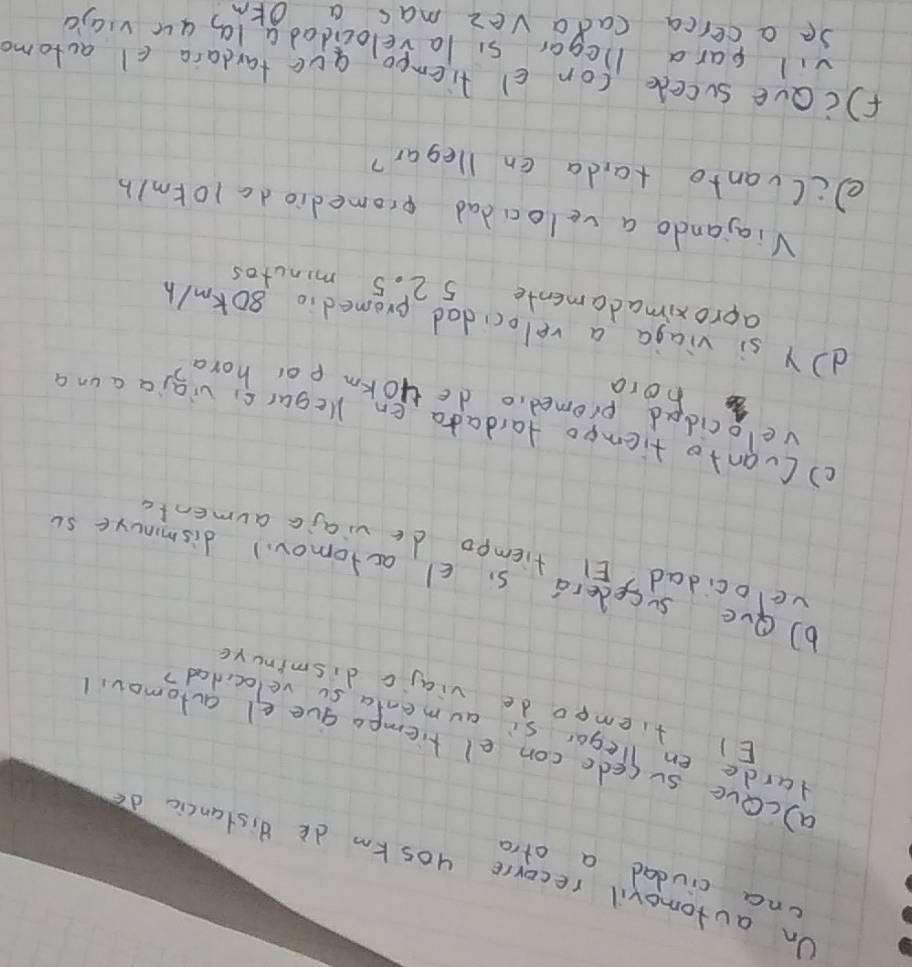 Un automovil recorre 405 Km de distancia de
una ciudad a otra
a) ¿Que sucede con el tiempo que el automovil
tarde en llegar si aumenta su velocidad?
El tiempo de viaje disminuye
b) Que sucederá si el automovil disminuye su
velocidad? El tiempo de viaje aumenta
c) Cuanto tiempo tardada en llegar si viaja a una
velocidad promedio de 40 Km por hora?
hora
d) Y si viaja a velocidad promedio 80 Km/h
aproximadamente 52.5 minutos
Viajando a velocidad promedio de 10 Km/h
e) ¿Cuanto tarda en llegar?
f) ¿Que sucede con el tiempo que tardara el automo
vil para llegar si la velocidad a la que viaja
se acerca cada vez mas a 0 Km